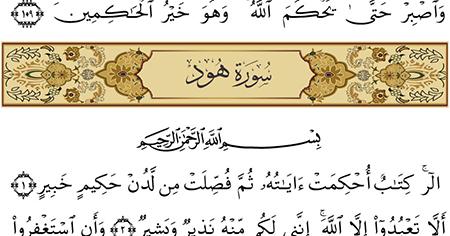 وَٱصْبِرْ حَتَّىٰ يَحْكُمَ ٱللَّهُ وَهُوَ خَيْرُ ٱلْحَـٰكِمِينَ ١٠٩
سُورَةُ هُودٍ
بِسْمِ ٱللَّهِ ٱلرَّحْمَـٰنِ ٱلرَّحِيمِ
الٓر كِتَـٰبٌ أُحْكِمَتْ ءَايَـٰتُهُۥ ثُمَّ فُصِّلَتْ مِن لَّدُنْ حَكِيمٍ خَبِيرٍ ١
أَلَّا تَعْبُدُوٓا۟ إِلَّا ٱللَّهَ ۚ إِنَّنِى لَكُم مِّنْهُ نَذِيرٌ وَبَشِيرٌ ٢ وَأَنِ ٱسْتَغْفِرُوا۟